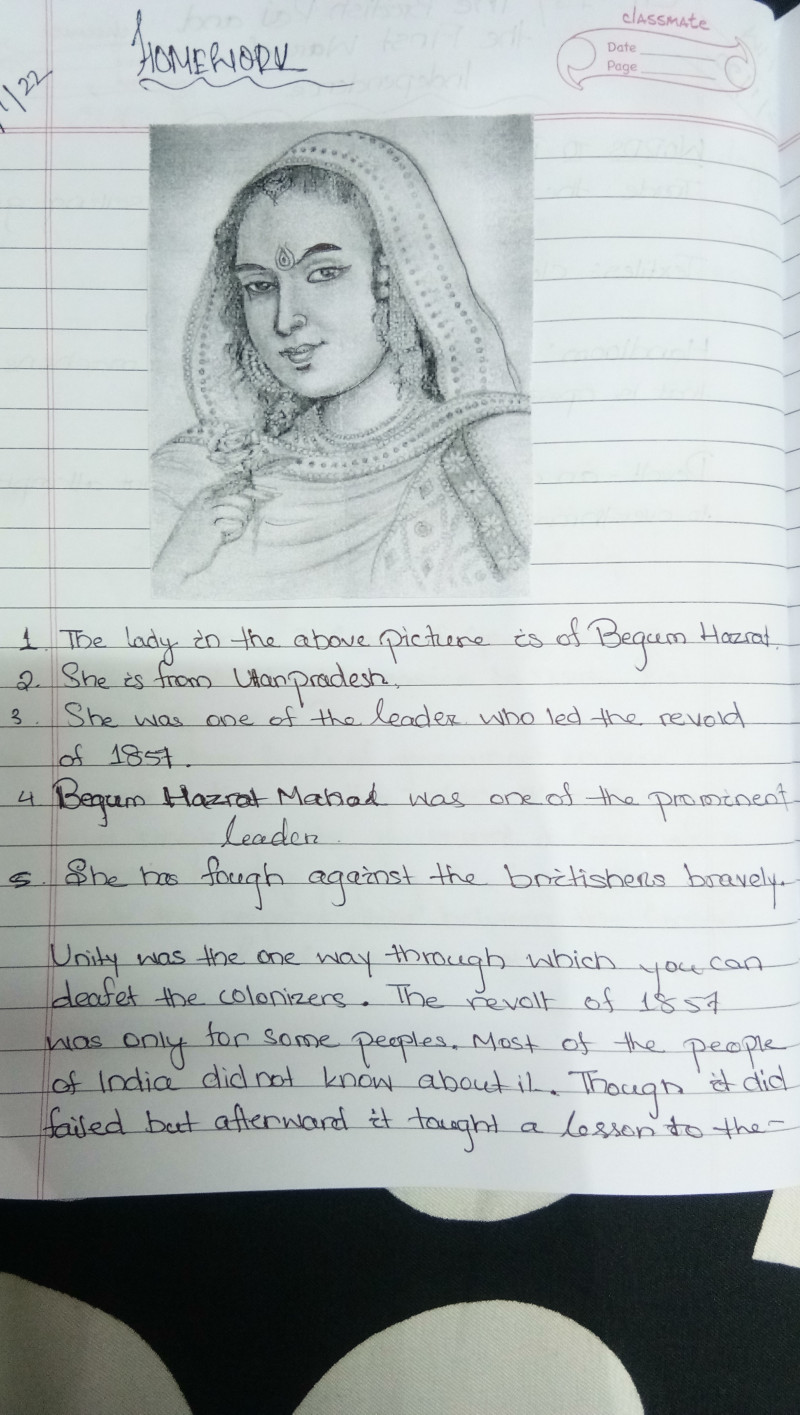 HOMEWORK
classmate
Date
Page
/22
1. The lady in the above picture is of Begum Hazrat.
2. She is from Uttarpradesh.
3. She was one of the leader who led the revold
of 1857.
4 Begum Hazrat Mahal was one of the prominent
leader
5. She has fough against the britishers bravely.
Unity was the one way through which you can
deafet the colonizers. The revolt of 1857
was only for some peoples. Most of the people
of India did not know about it. Though it did
failed but afterward it tought a lesson to the-